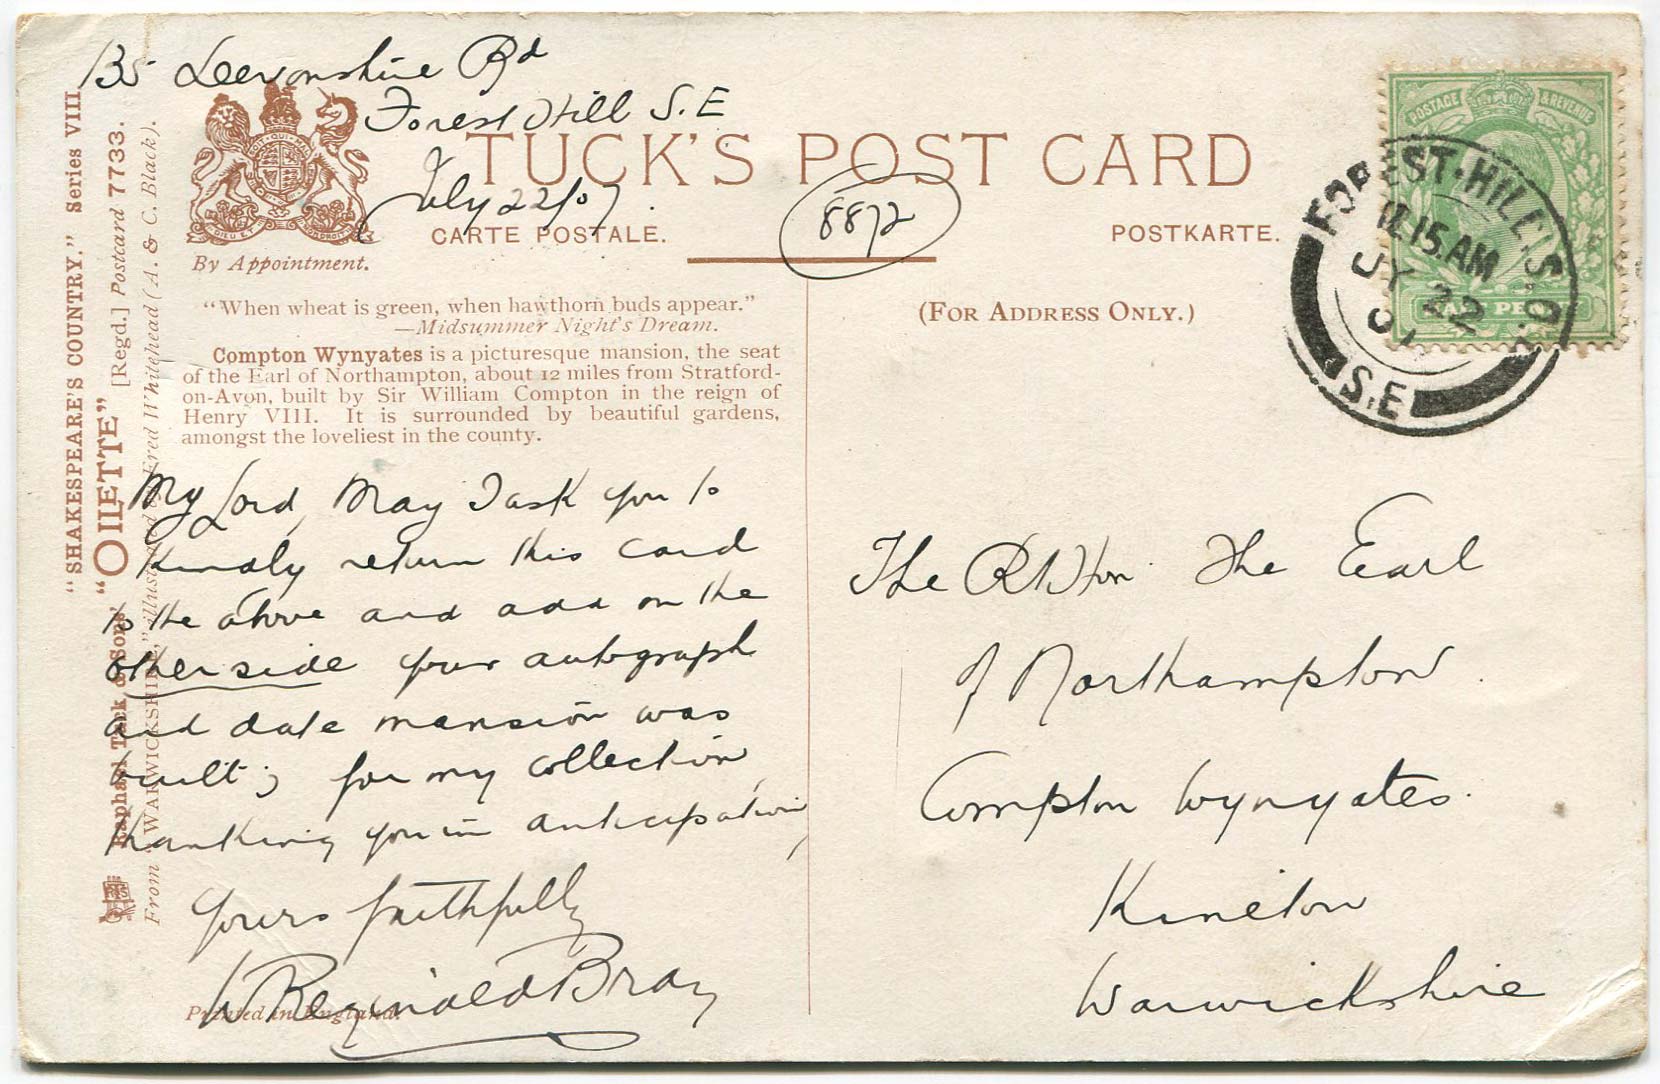 135 Devonshire Rd
Forest Hill S.E
July 22/07.
TUCK'S POST CARD
8872
CARTE POSTALE.
POSTKARTE.
By Appointment.
(FOR ADDRESS ONLY.)
"When wheat is green, when hawthorn buds appear."
—Midsummer Night's Dream.
Compton Wynyates is a picturesque mansion, the seat
of the Earl of Northampton, about 12 miles from Stratford-
on-Avon, built by Sir William Compton in the reign of
Henry VIII. It is surrounded by beautiful gardens,
amongst the loveliest in the county.
My Lord, May I ask you to
kindly return this card
to the above and add on the
other side your autograph
and date mansion was
built; for my collection,
thanking you in anticipation,
Yours faithfully
W Reginald Bray
Printed in England.
"SHAKESPEARE'S COUNTRY." Series VIII.
Raphael Tuck & Sons' "OILETTE" [Regd.] Postcard 7733.
From "WARWICKSHIRE," illustrated by Fred Whitehead (A. & C. Black).
POSTAGE & REVENUE
FOREST-HILL.S.O.
12.15.AM
JY 22
07
S.E
The Rt Hon. The Earl
of Northampton.
Compton Wynyates.
Kineton
Warwickshire